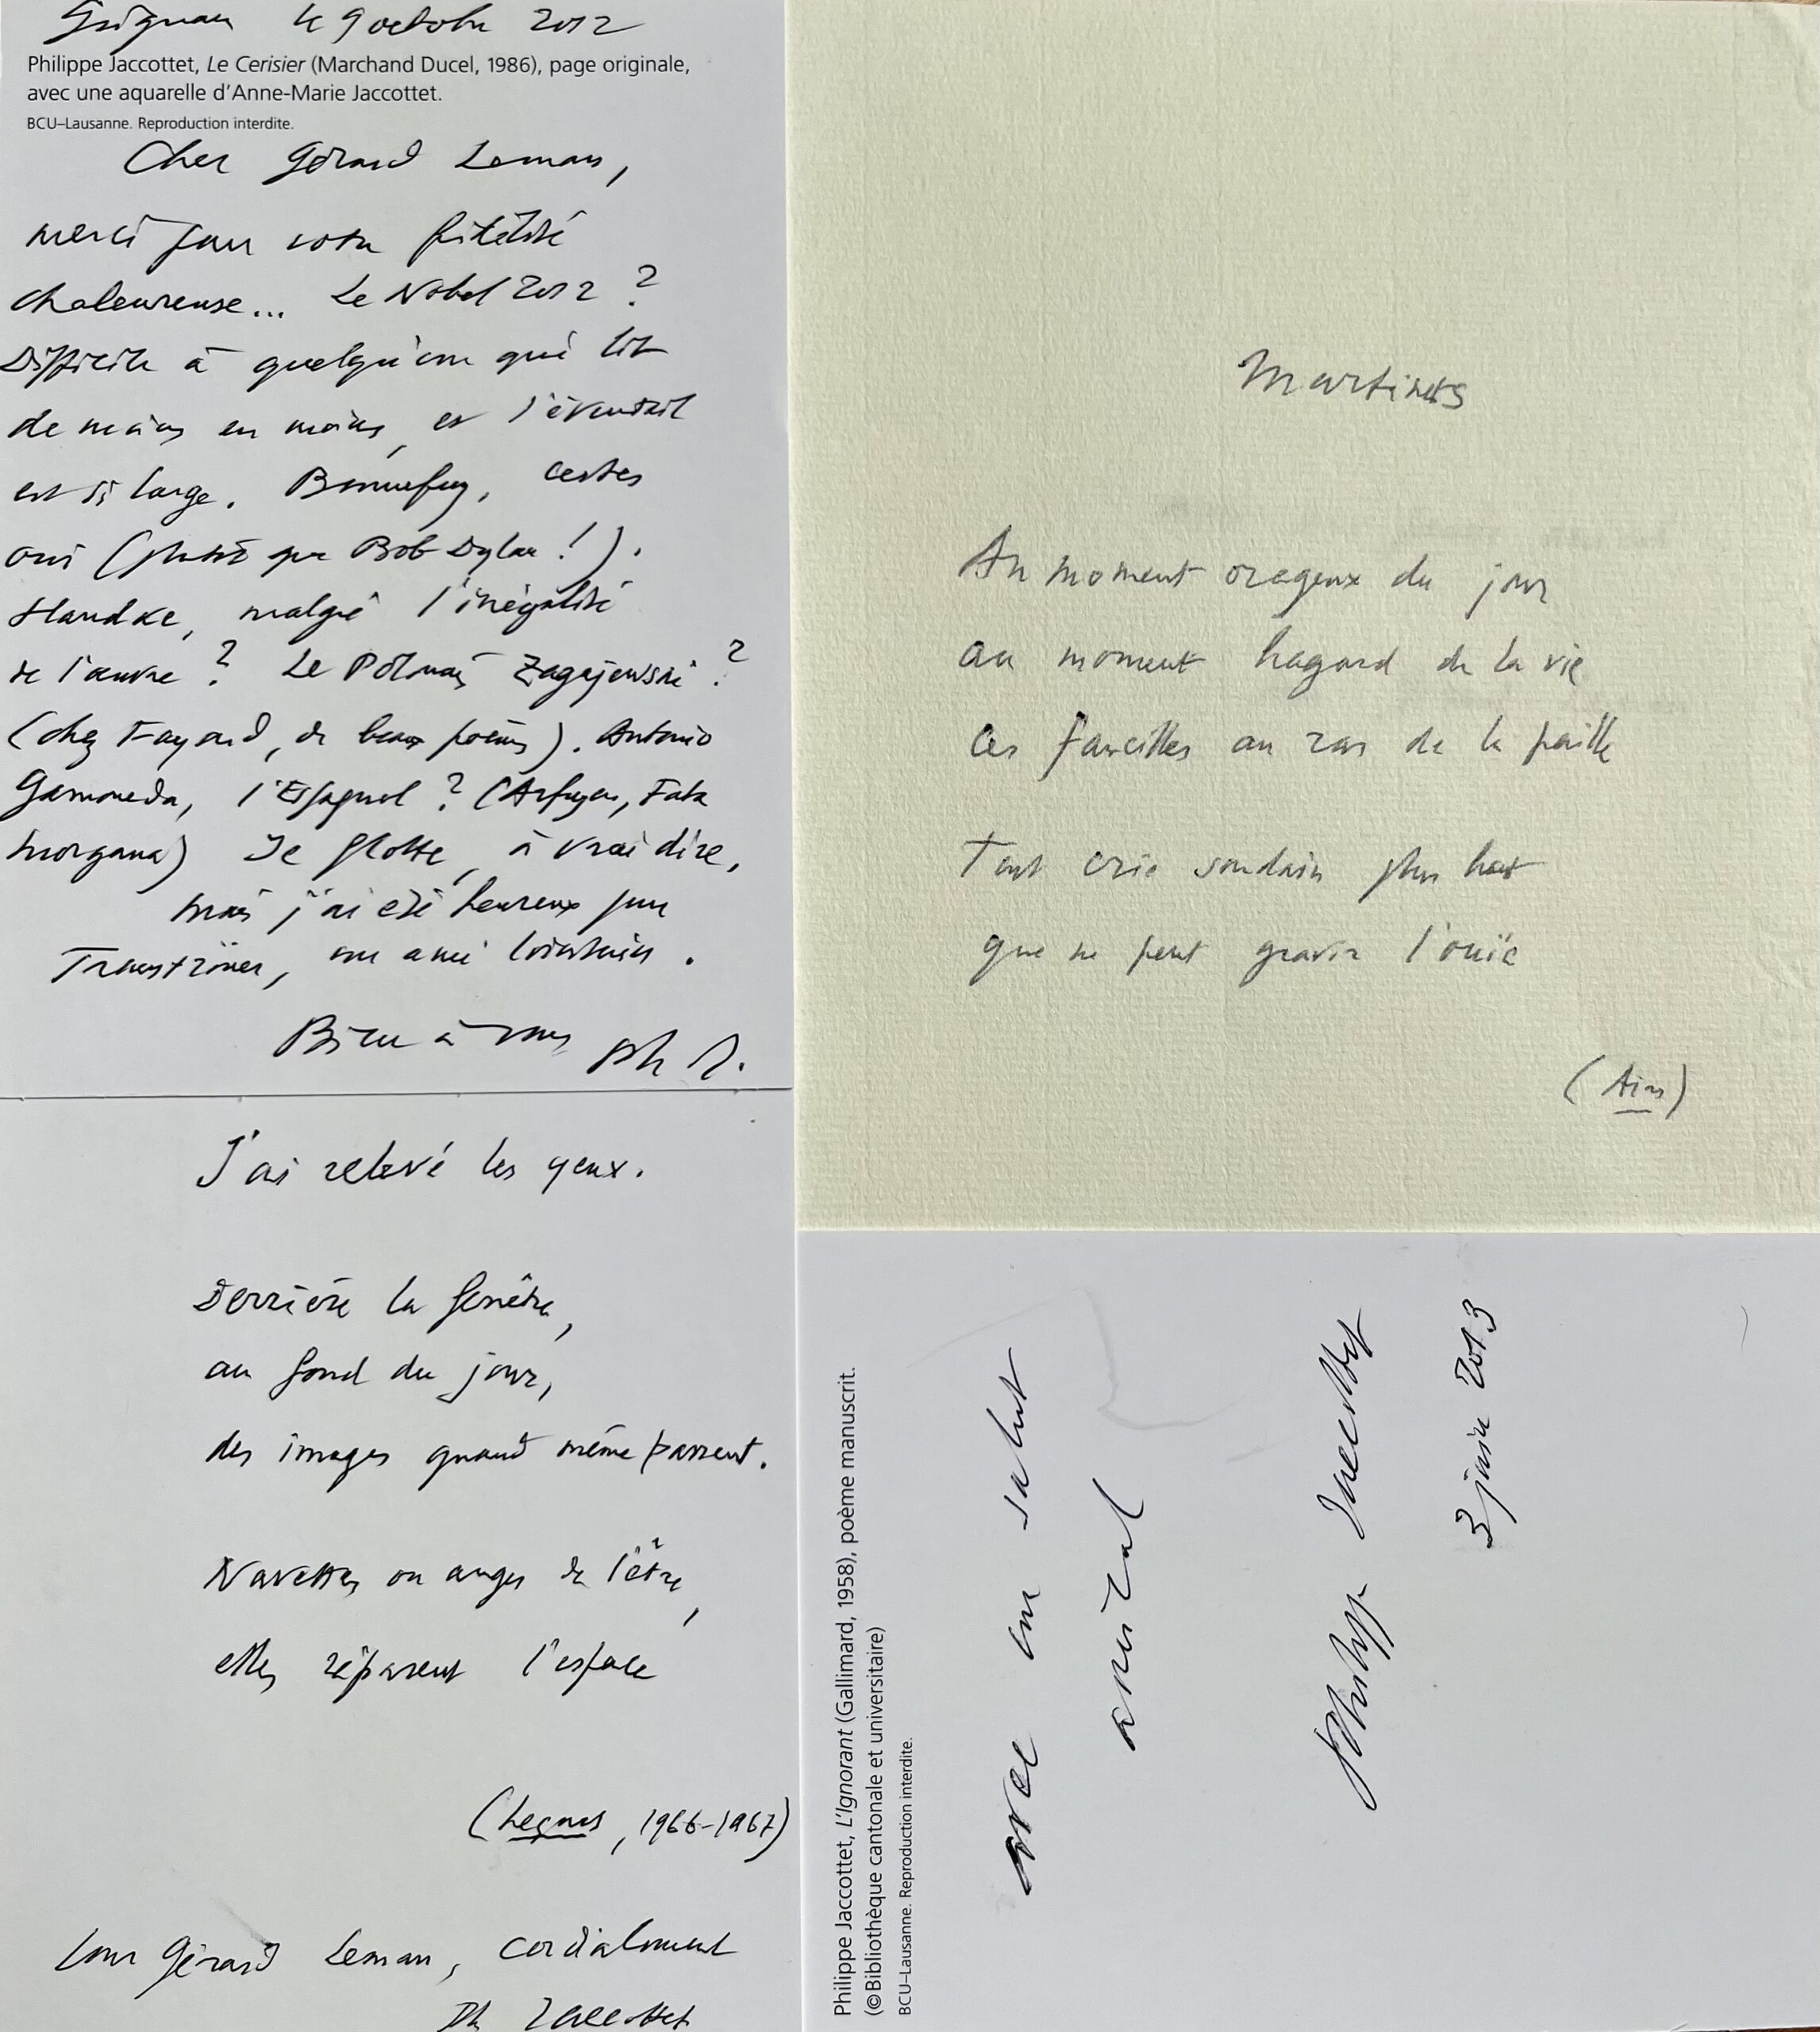 Grignan le 9 octobre 2012
Philippe Jaccottet, Le Cerisier (Marchand Ducel, 1986), page originale,
avec une aquarelle d'Anne-Marie Jaccottet.
BCU–Lausanne. Reproduction interdite.
Cher Gérard Leman,
merci pour votre fidélité
chaleureuse... Le Nobel 2012 ?
Difficile à quelqu'un qui lit
de moins en moins, et l'éventail
est si large. Bonnefoy, certes
oui (plutôt que Bob Dylan !).
Handke, malgré l'inégalité
de l'œuvre ? Le Polonais Zagajewski ?
(chez Fayard, de beaux poèmes). Antonio
Gamoneda, l'Espagnol ? (Arfuyen, Fata
Morgana) Je flotte, à vrai dire,
mais j'ai été heureux pour
Tranströmer, un ami lointain.
Bien à vous Ph J.
J'ai relevé les yeux.
Derrière la fenêtre,
au fond du jour,
des images quand même passent.
Navettes ou anges de l'être,
elles réparent l'espace
(Leçons, 1966-1967)
Pour Gérard Leman, cordialement
Ph Jaccottet
Martinets
Au moment orageux du jour
au moment hagard de la vie
ces faucilles au ras de la paille
Tout crie soudain plus haut
que ne peut gravir l'ouïe
(Airs)
Philippe Jaccottet, L'Ignorant (Gallimard, 1958), poème manuscrit.
(©Bibliothèque cantonale et universitaire)
BCU–Lausanne. Reproduction interdite.
avec un salut
amical
Philippe Jaccottet
3 juin 2013